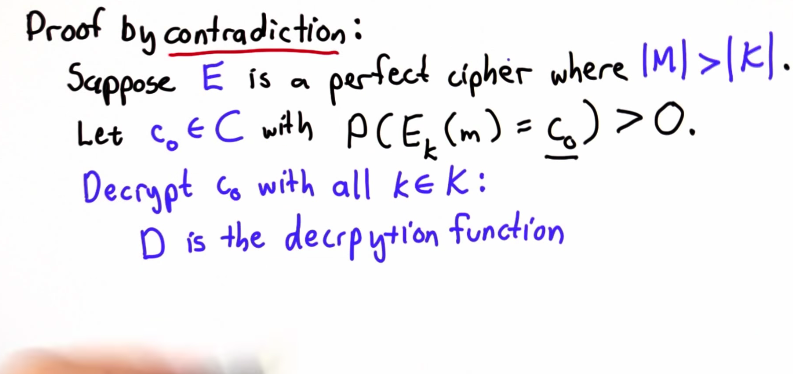 Proof by contradiction:
Suppose E is a perfect cipher where |M| > |K|.
Let c₀ ∈ C with P(Eₖ(m) = c₀) > 0.
Decrypt c₀ with all k ∈ K:
D is the decrpytion function